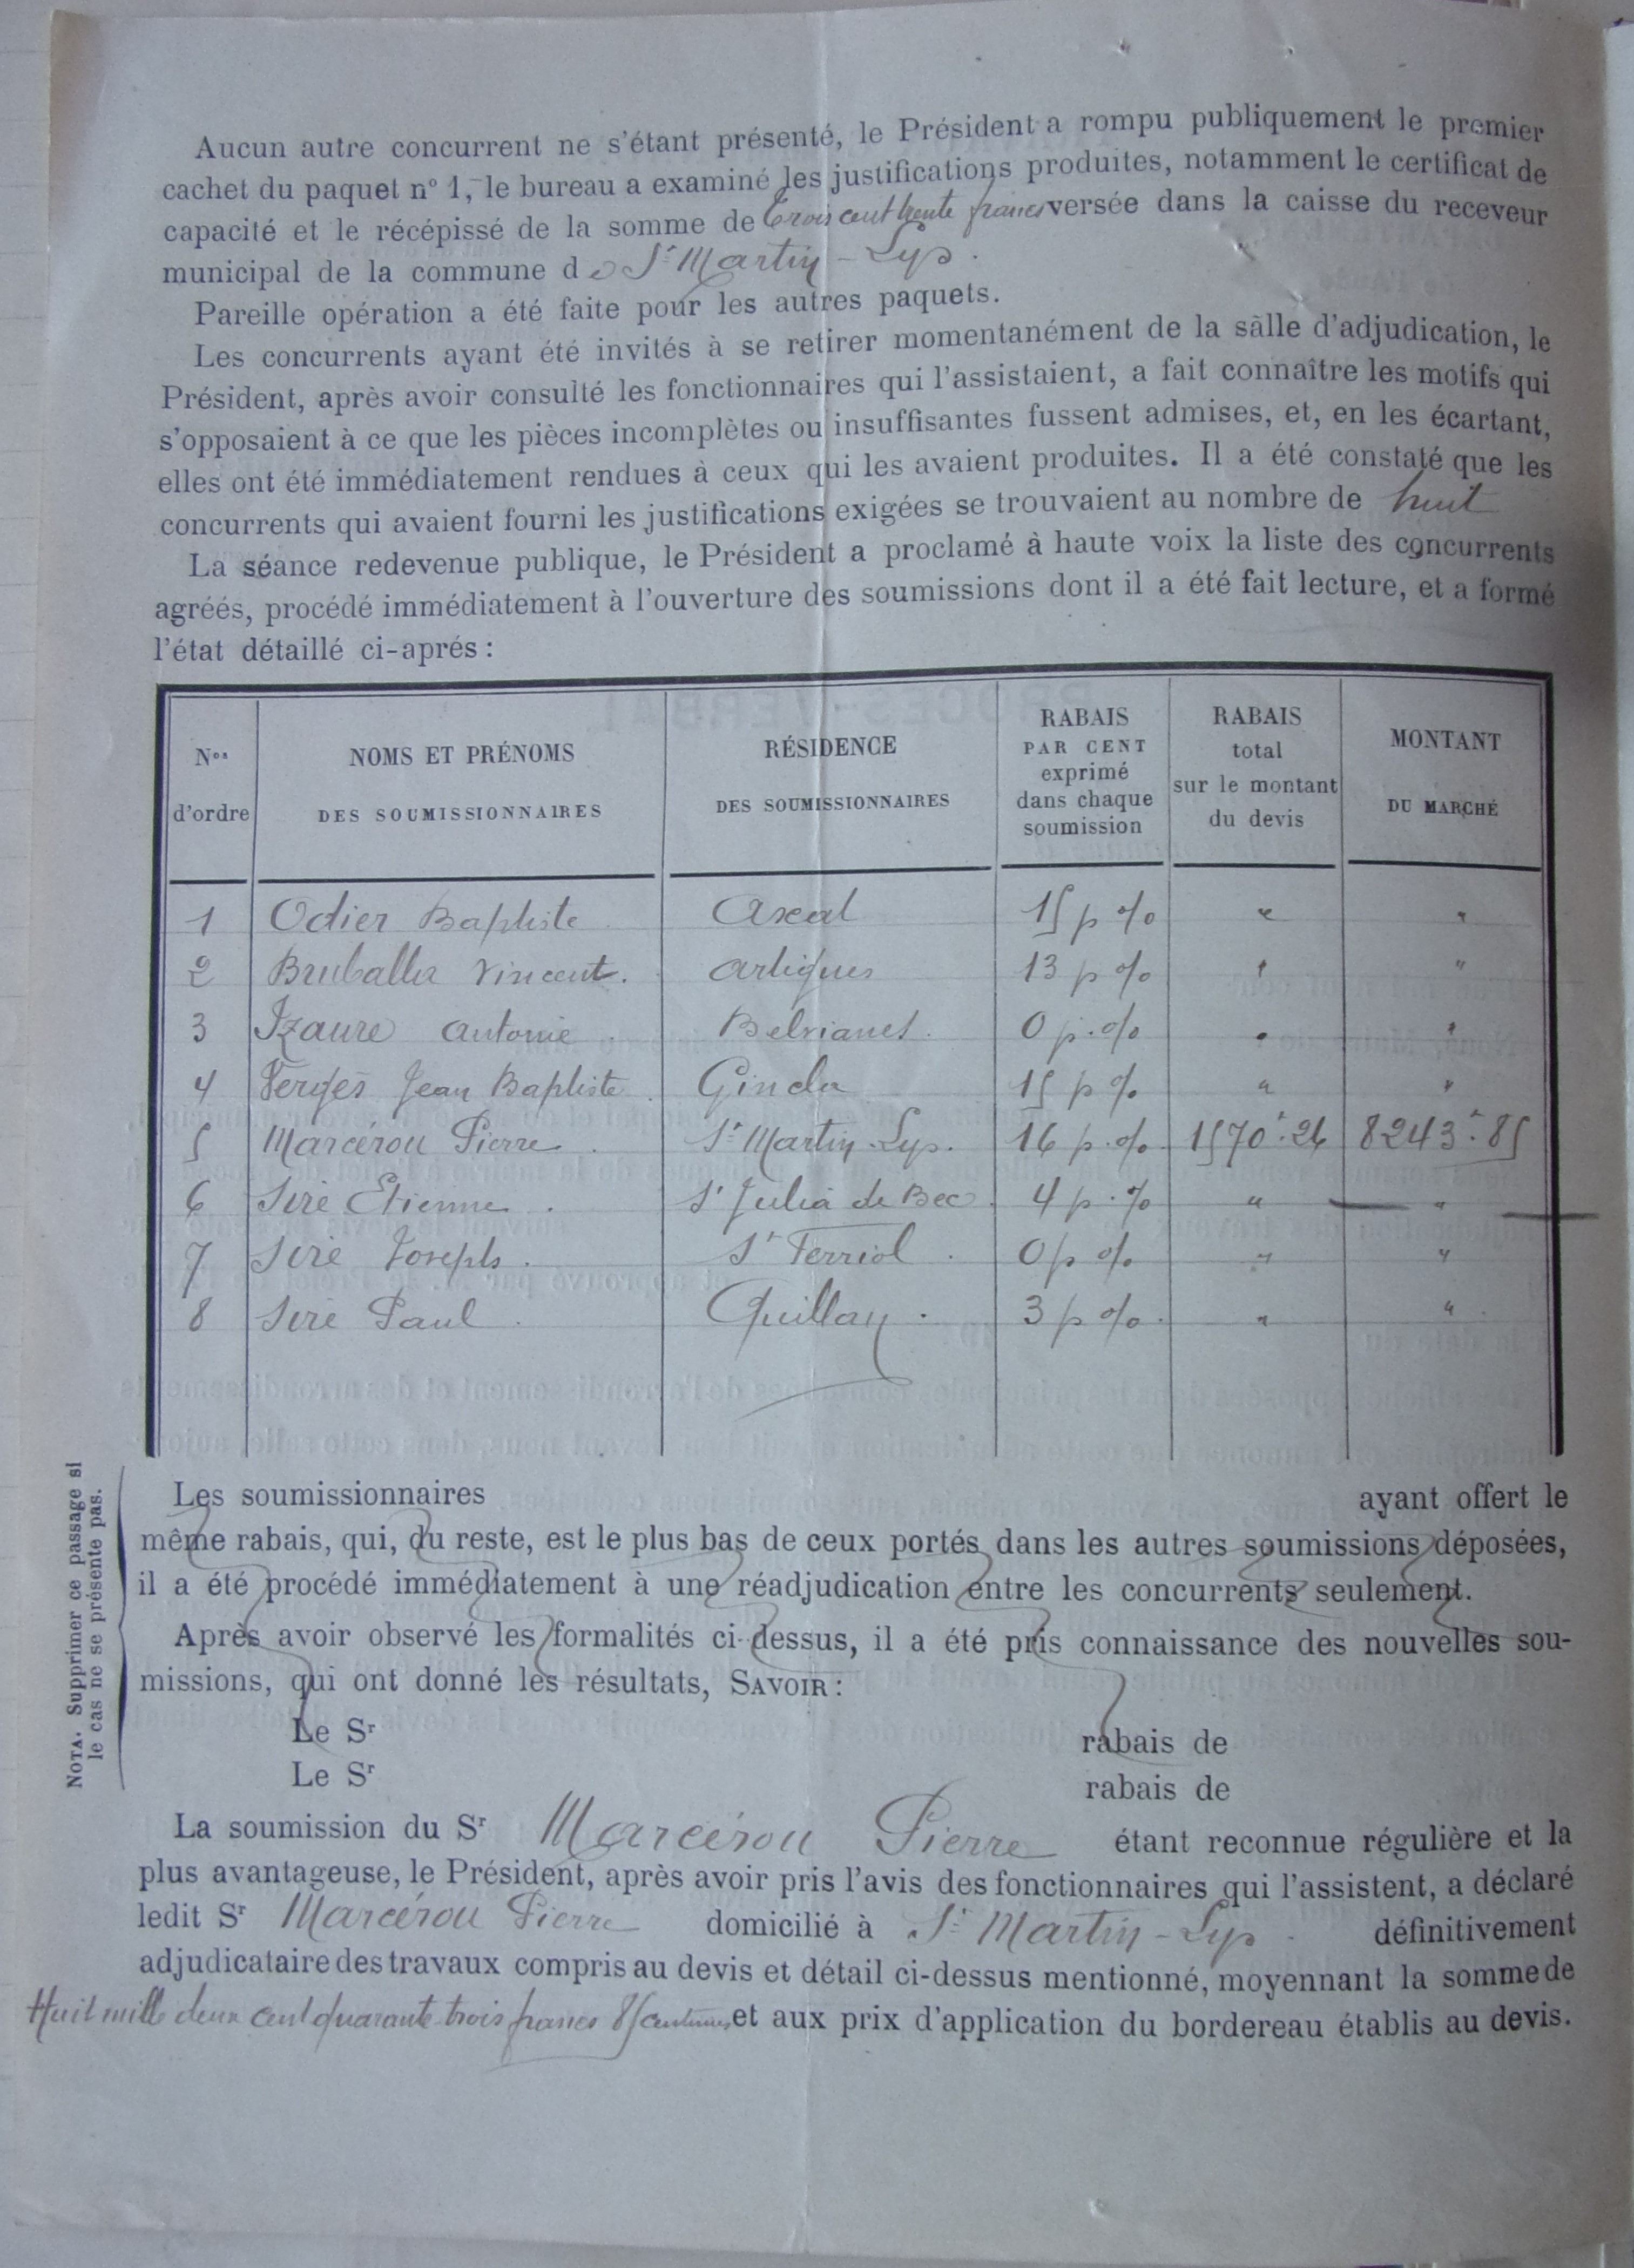 Aucun autre concurrent ne s'étant présenté, le Président a rompu publiquement le premier
cachet du paquet n° 1, le bureau a examiné les justifications produites, notamment le certificat de
capacité et le récépissé de la somme de Trois cent trente francs versée dans la caisse du receveur
municipal de la commune de St Martin-Lys.
Pareille opération a été faite pour les autres paquets.
Les concurrents ayant été invités à se retirer momentanément de la salle d'adjudication, le
Président, après avoir consulté les fonctionnaires qui l'assistaient, a fait connaître les motifs qui
s'opposaient à ce que les pièces incomplètes ou insuffisantes fussent admises, et, en les écartant,
elles ont été immédiatement rendues à ceux qui les avaient produites. Il a été constaté que les
concurrents qui avaient fourni les justifications exigées se trouvaient au nombre de huit
La séance redevenue publique, le Président a proclamé à haute voix la liste des concurrents
agréés, procédé immédiatement à l'ouverture des soumissions dont il a été fait lecture, et a formé
l'état détaillé ci-aprés :
Nos d'ordre
NOMS ET PRÉNOMS DES SOUMISSIONNAIRES
RÉSIDENCE DES SOUMISSIONNAIRES
RABAIS PAR CENT exprimé dans chaque soumission
RABAIS total sur le montant du devis
MONTANT DU MARCHÉ
1 Odier Baptiste Axat 15 p % " "
2 Vincent. Artigues 13 p % " "
3 Izaure Antoine Belvianes. 0 p. % " "
4 Vergès Jean Baptiste Gincla 15 p % " "
5 Marcérou Pierre St Martin-Lys. 16 p. % 1570f.26 8243f.85
6 Siré Etienne St Julia de Bec 4 p. % " "
7 Siré Joseph. St Ferriol 0 p % " "
8 Siré Paul Quillan. 3 p %. " "
NOTA. Supprimer ce passage si
le cas ne se présente pas.
Les soumissionnaires ayant offert le
même rabais, qui, du reste, est le plus bas de ceux portés dans les autres soumissions déposées,
il a été procédé immédiatement à une réadjudication entre les concurrents seulement.
Après avoir observé les formalités ci-dessus, il a été pris connaissance des nouvelles sou-
missions, qui ont donné les résultats, SAVOIR :
Le Sr rabais de
Le Sr rabais de
La soumission du Sr Marcérou Pierre étant reconnue régulière et la
plus avantageuse, le Président, après avoir pris l'avis des fonctionnaires qui l'assistent, a déclaré
ledit Sr Marcérou Pierre domicilié à St Martin-Lys. définitivement
adjudicataire des travaux compris au devis et détail ci-dessus mentionné, moyennant la somme de
Huit mille deux cent quarante-trois francs 85 centimes, et aux prix d'application du bordereau établis au devis.